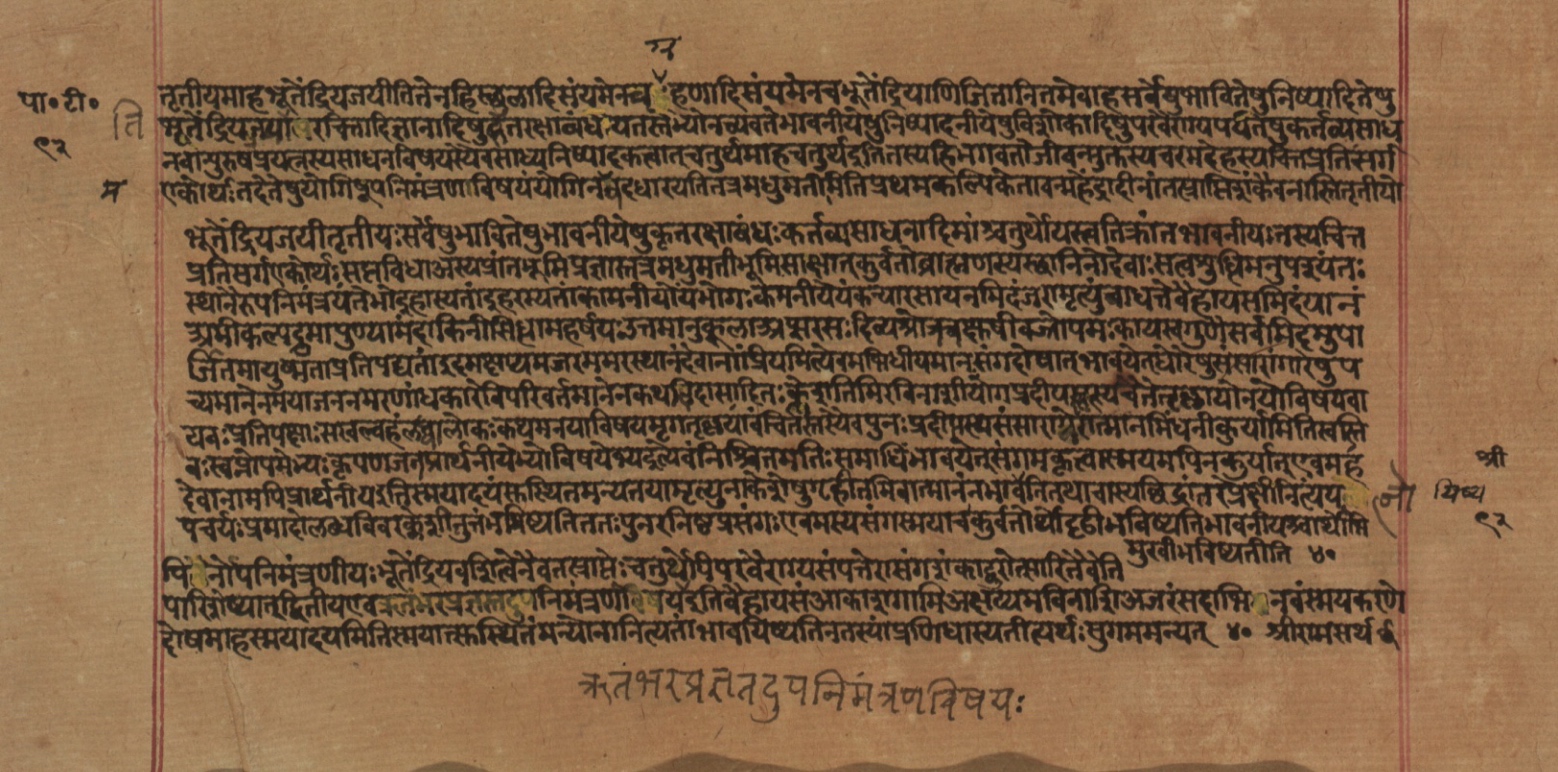 ग्र
पा॰ टी॰
९२
ति
म
तृतीयमाह भूतेंद्रियजयीति तेन हि स्थूलादिसंयमेन ग्रहणादिसंयमेन च भूतेंद्रियाणि जितानि तमेवाह सर्वेषु भावितेषु निष्पादितेषु
भूतेंद्रियजयात् परचित्तादिज्ञानादिषु कृतरक्षाबंधः यतस्तेभ्यो न च्यवते भावनीयेषु निष्पादनीयेषु विशोकादिषु परवैराग्यपर्यंतेषु कर्तव्यसाध
नवान्पुरुषप्रयत्नस्य साधनविषयस्यैव साध्यनिष्पादकत्वात् चतुर्थमाह चतुर्थ इति तस्य हि भगवतो जीवन्मुक्तस्य चरमदेहस्य चित्तप्रतिसर्ग
एकोर्थः तदेतेषु योगिषूपनिमंत्रणविषयं योगिनमवधारयति तत्र मधुमतीमिति प्रथमकल्पिके तावन्महेंद्रादीनां तत्प्राप्तिशंकैव नास्ति तृतीयो
भूतेंद्रियजयी तृतीयः सर्वेषु भावितेषु भावनीयेषु कृतरक्षाबंधः कर्तव्यसाधनादिमान् चतुर्थो यस्त्वतिक्रांतभावनीयः तस्य चित्त
प्रतिसर्ग एकोर्थः सप्तविधा अस्य प्रांतभूमिप्रज्ञा तत्र मधुमतीं भूमिं साक्षात्कुर्वतो ब्राह्मणस्य स्थानिनो देवाः सत्वशुद्धिमनुपश्यंतः
स्थानैरुपनिमंत्रयंते भो इहास्यतां इह रम्यतां कामनीयोयं भोगः कमनीयेयं कन्या रसायनमिदं जरामृत्युं बाधते वैहायसमिदं यानं
अमी कल्पद्रुमा पुण्या मंदाकिनी सिद्धा महर्षयः उत्तमा अनुकूला अप्सरसः दिव्ये श्रोत्रचक्षुषी वज्रोपमः कायः स्वगुणैः सर्वमिदमुपा
र्जितमायुष्मता प्रतिपद्यतां इदमक्षय्यमजरममरस्थानं देवानां प्रियमित्येवमभिधीयमानः संगदोषान् भावयेत् घोरेषु संसारांगारेषु प
च्यमानेन मया जननमरणांधकारे विपरिवर्तमानेन कथंचिदासादितः क्लेशतिमिरविनाशी योगप्रदीपः तस्य चैते तृष्णायोनयो विषयवा
यवः प्रतिपक्षाः स खल्वहं लब्धालोकः कथमनया विषयमृगतृष्णया वंचितः तस्यैव पुनः प्रदीप्तस्य संसाराग्नेरात्मानमिंधनीकुर्यामिति स्वस्ति
वः स्वप्नोपमेभ्यः कृपणजनप्रार्थनीयेभ्यो विषयेभ्य इत्येवं निश्चितमतिः समाधिं भावयेत् संगमकृत्वा स्मयमपि न कुर्यात् एवमहं
देवानामपि प्रार्थनीय इति स्मयादयं सुस्थितमन्यतया मृत्युना केशेषु गृहीतमिवात्मानं न भावयति तथा चास्य छिद्रांतरप्रेक्षी नित्यं यत्नो
पचर्यः प्रमादो लब्धविवरः क्लेशानुत्तंभयिष्यति ततः पुनरनिष्टप्रसंगः एवमस्य संगस्मयावकुर्वतोर्थो दृढीभविष्यति भावनीयश्चार्थोभि
मुखीभविष्यतीति ४०
पि नोपनिमंत्रणीयः भूतेंद्रियवशित्वेनैव तत्प्राप्तेः चतुर्थेपि परवैराग्यसंपत्तेरासंगशंका दूरोत्सारितैवेति
पारिशेष्यात् द्वितीय एव ऋतंभरप्रज्ञः तदुपनिमंत्रणविषय इति वैहायसं आकाशगामि अक्षय्यमविनाशि अजरं सदाभिनवं स्मयकरणे
दोषमाह स्मयादयमिति स्मयात्सुस्थितंमन्यो नानित्यतां भावयिष्यति न तस्यां प्रणिधास्यतीत्यर्थः सुगममन्यत् ४० श्रीराम
श्री
यिष्य
९२
ऋतंभरप्रज्ञ तदुपनिमंत्रणविषयः